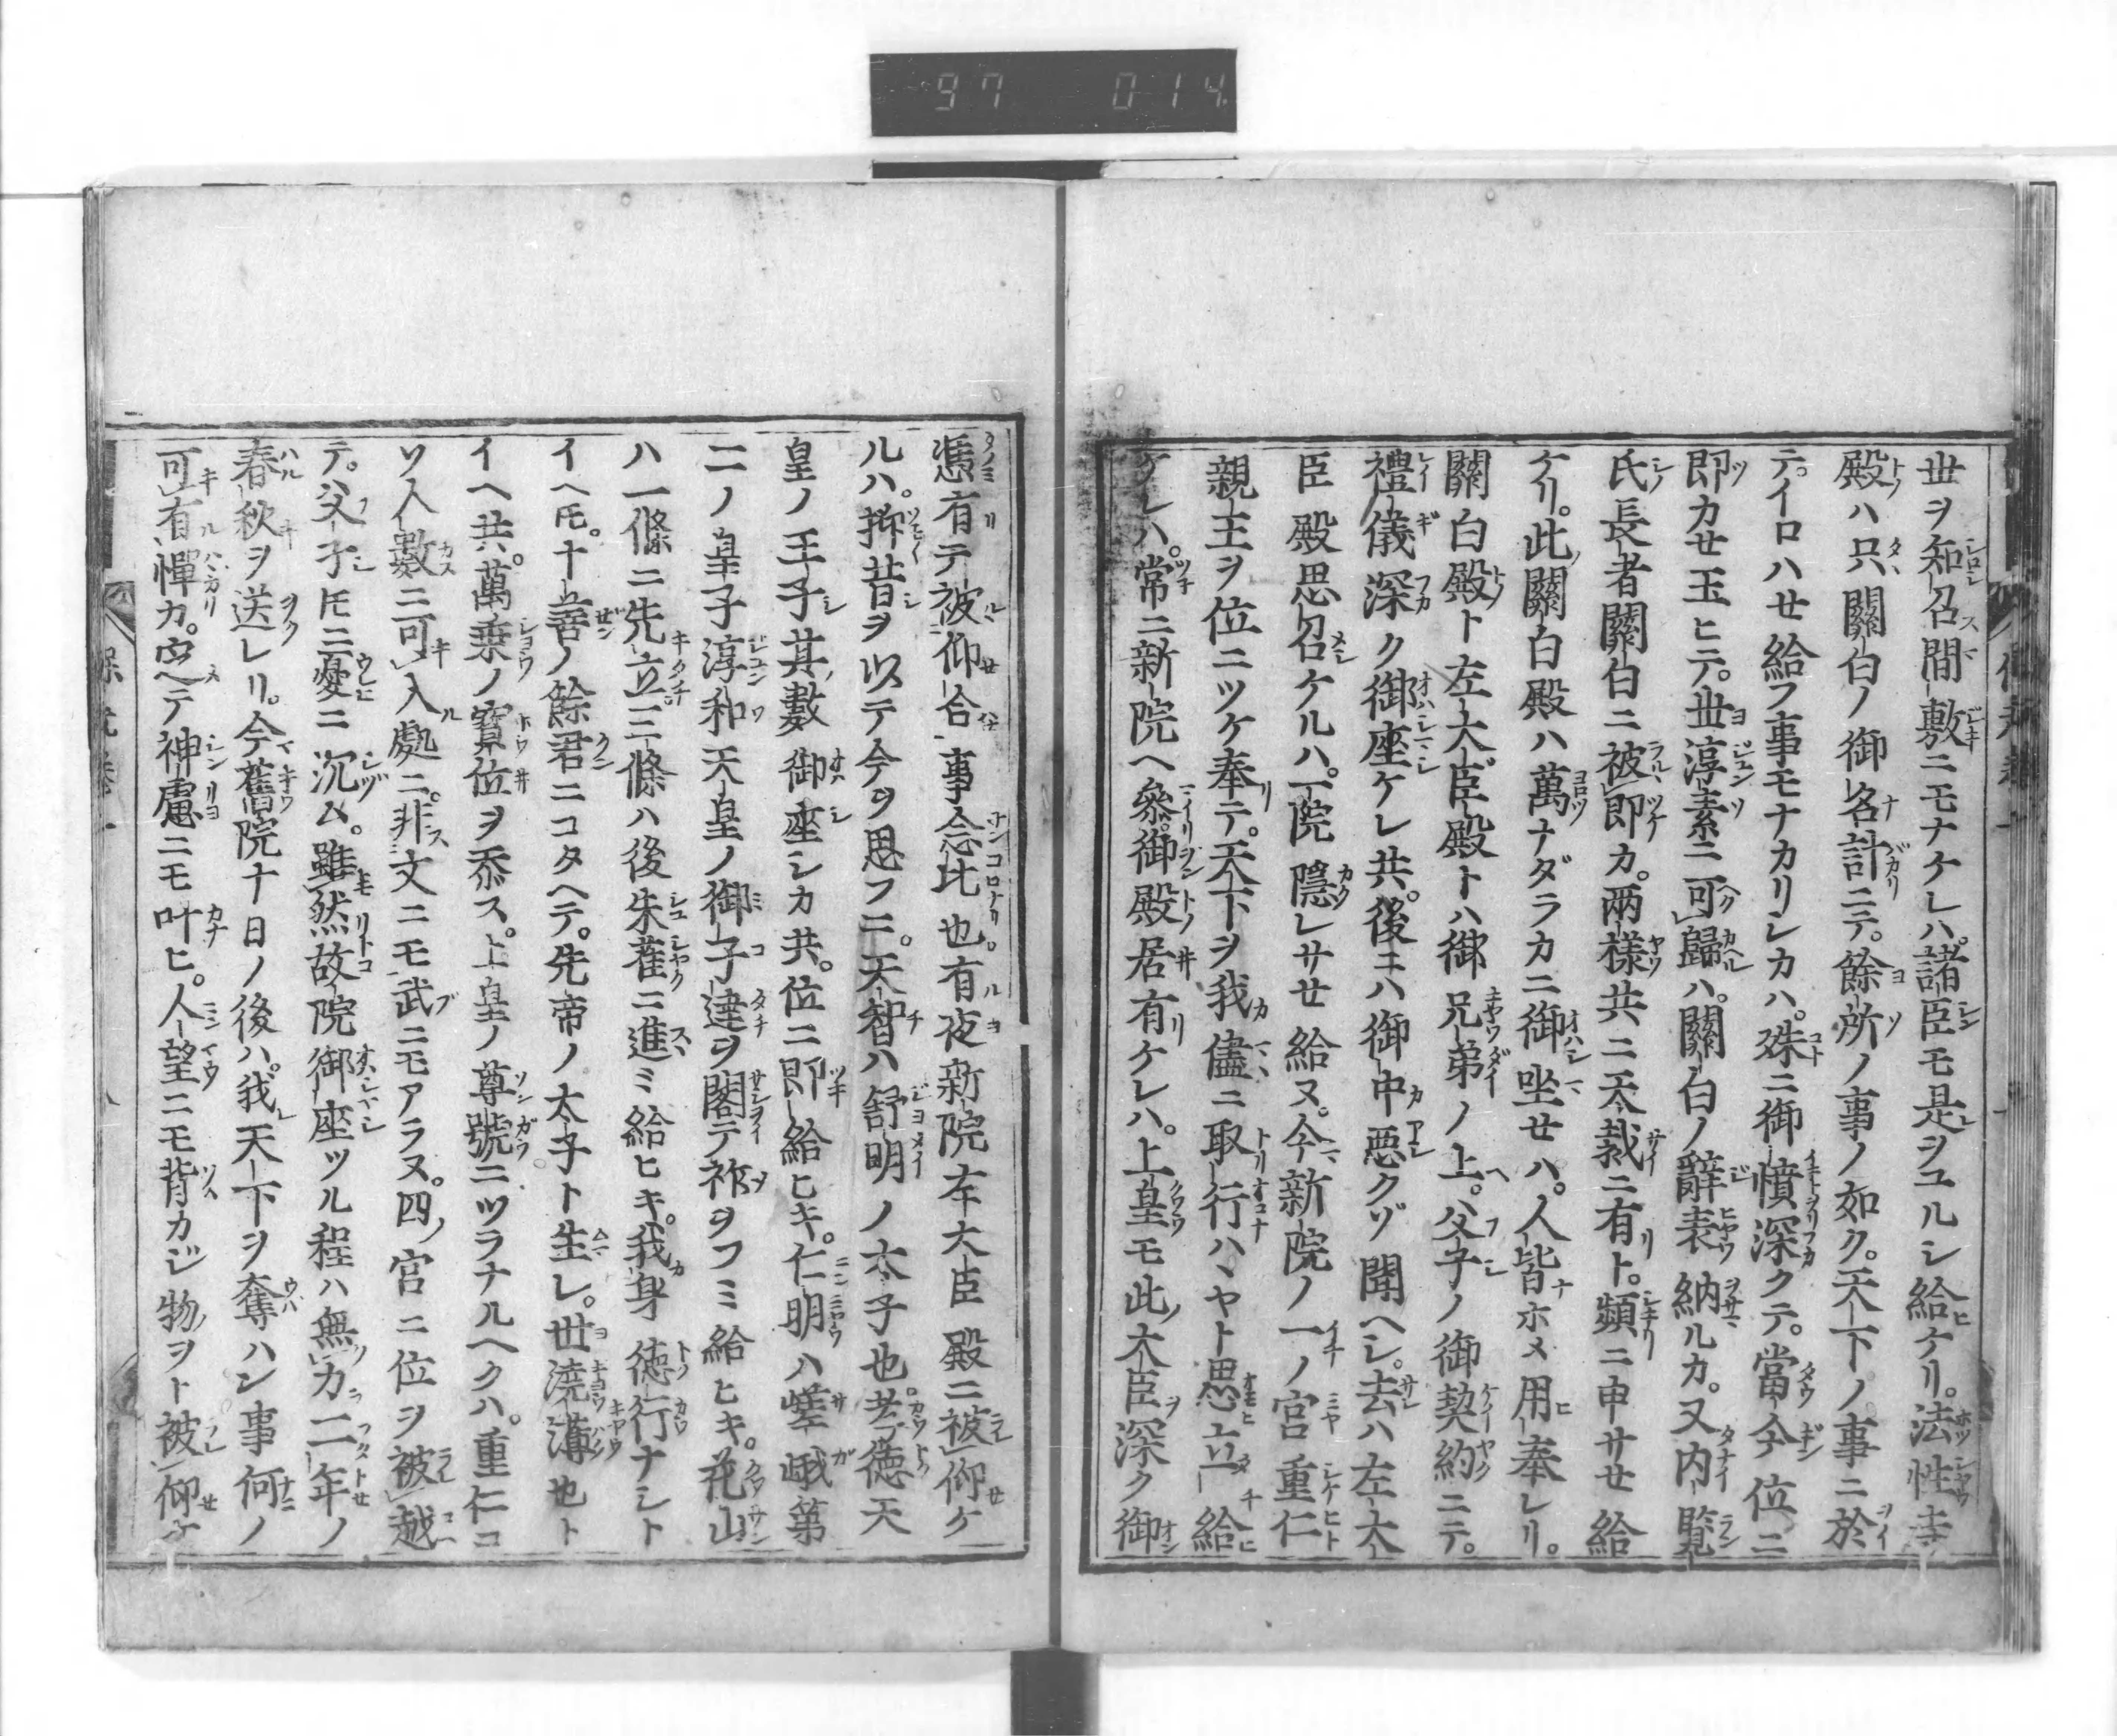 97 014
世ヲ知召間敷ニモナケレハ。諸臣モ是ヲユルシ給ケリ。法性寺
殿ハ只關白ノ御名計ニテ。餘所ノ事ノ如ク。天下ノ事ニ於
テイロハせ給フ事モナカリシカハ。殊ニ御憤深クテ。當今位ニ
即カせ玉ヒテ。世淳素ニ可歸ハ。關白ノ辭表納ルカ。又内覽
氏長者關白ニ被即カ。兩樣共ニ天裁ニ有ト。頻ニ申サせ給
ケリ。此關白殿ハ萬ナダラカニ御坐せハ。人皆ホメ用奉レリ。
關白殿ト左大臣殿トハ御兄弟ノ上。父子ノ御契約ニテ。
禮儀深ク御座ケレ共。後ニハ御中惡クゾ聞ヘシ。去ハ左大
臣殿思召ケルハ。一院隱レサせ給ヌ。今新院ノ一ノ宮重仁
親王ヲ位ニツケ奉テ。天下ヲ我儘ニ取行ハヽヤト思立給
ケレハ。常ニ新院ヘ參御殿居有ケレハ。上皇モ此大臣深ク御
憑有テ被仰合事念比也。有夜新院左大臣殿ニ被仰ケ
ルハ。抑昔ヲ以テ今ヲ思フニ。天智ハ舒明ノ太子也。孝德天
皇ノ王子其數御座シカ共。位ニ即給ヒキ。仁明ハ嵯峨第
二ノ皇子淳和天皇ノ御子達ヲ閣テ祚ヲフミ給ヒキ。花山
ハ一條ニ先立三條ハ後朱雀ニ進ミ給ヒキ。我身德行ナシト
イヘ𪜈。十善ノ餘君ニコタヘテ。先帝ノ太子ト生レ。世澆薄也ト
イヘ共。萬乘ノ寶位ヲ忝ス。上皇ノ尊號ニツラナルヘクハ。重仁コ
ソ人數ニ可入處ニ。非文ニモ武ニモアラヌ。四ノ宮ニ位ヲ被越
テ。父子𪜈ニ憂ニ沉ム。雖然故院御座ツル程ハ無力二年ノ
春秋ヲ送レリ。今舊院十日ノ後ハ。我天下ヲ奪ハン事何ノ
可有憚カ。定テ神慮ニモ叶ヒ。人望ニモ背カジ物ヲト被仰ケ